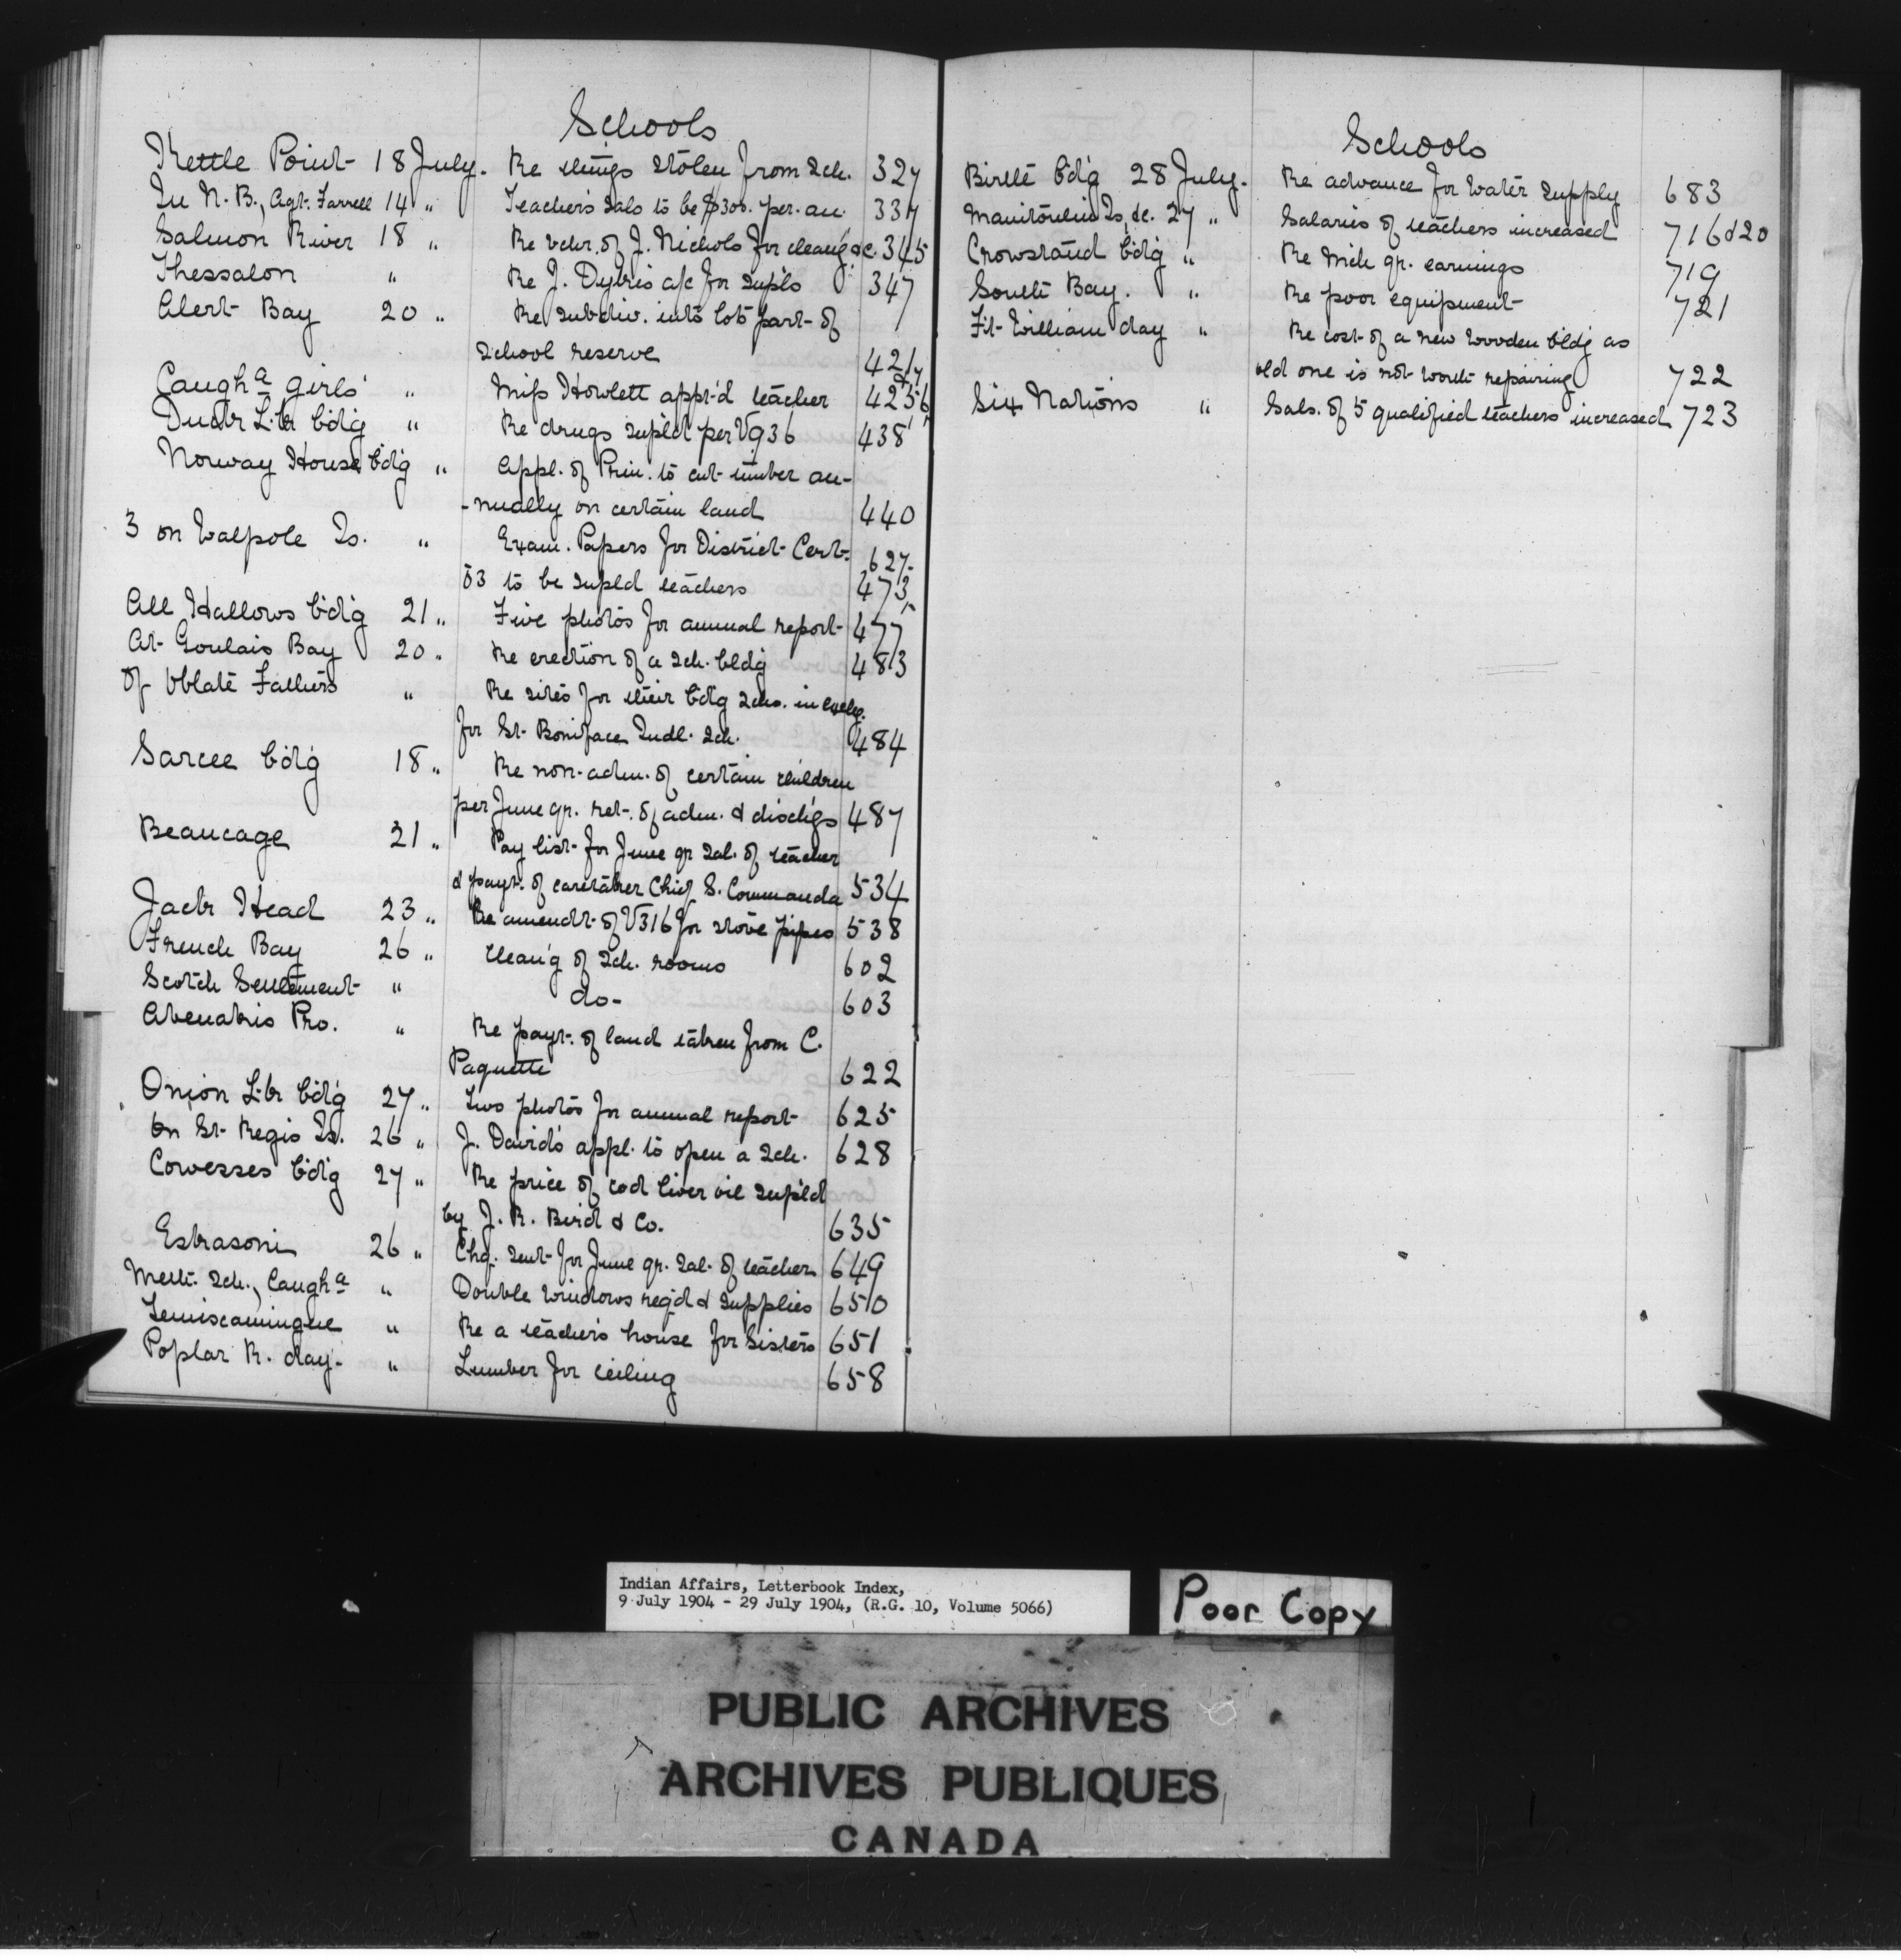 Schools
Kettle Point 18 July. Re things stolen from Sch. 327
In N.B., Agt. Farrell 14 " Teachers Sals to be $300. per. an. 337
Salmon River 18 " Re vchr. of J. Nichols for cleang &c. 345
Thessalon " Re J. Dyke's a/c for supls 347
Alert Bay 20 " Re subdiv. into lots part of
School reserve 421
Caugha girls' " Miss Howlett appt'd teacher 425
Duck Lk bdg " Re drugs supld per V936 438
Norway House bdg " Appl. of Prin. to cut timber an-
-nually on certain land 440
3 on Walpole Is. " Exam. Papers for District Cert. 627.
03 to be supld teachers 473
All Hallows bdg 21 " Five photos for annual report 477
At Goulais Bay 20 " Re erection of a Sch. bldg 483
Of Oblate Fathers " Re sites for their bdg Schs. in exchg.
for St. Boniface Indl. Sch. 484
Sarcee bdg 18 " Re non-adm. of certain children
per June qr. ret. of adm. & dischgs 487
Beaucage 21 " Pay list for June qr Sal. of teacher
& payt. of caretaker Chief S. Commanda 534
Jack Head 23 " Re amendt. of V316 for stove pipes 538
French Bay 26 " Cleang of Sch. rooms 602
Scotch Settlement " do- 603
Abenakis Pro. " Re payt. of land taken from C.
Paquette 622
Onion Lk bdg 27 " Two photos for annual report 625
On St. Regis Is. 26 " J. David's appl. to open a Sch. 628
Cowesses bdg 27 " Re price of cod liver oil supld
by J. R. Bird & Co. 635
Eskasoni 26 " Chq. sent for June qr. Sal. of teacher 649
Meth. Sch., Caugha " Double windows reqd & supplies 650
Temiscamingue " Re a teacher's house for Sisters 651
Poplar R. day. " Lumber for ceiling 658
Schools
Birtle bdg 28 July. Re advance for water supply 683
Manitoulin Is, &c. 27 " Salaries of teachers increased 716 & 20
Crowstand bdg " Re Mch qr. earnings 719
South Bay. " Re poor equipment 721
Ft. William day " Re cost of a new wooden bldg as
old one is not worth repairing 722
Six Nations " Sals. of 5 qualified teachers increased 723
Indian Affairs, Letterbook Index,
9 July 1904 - 29 July 1904, (R.G. 10, Volume 5066)
Poor Copy
PUBLIC ARCHIVES
ARCHIVES PUBLIQUES
CANADA